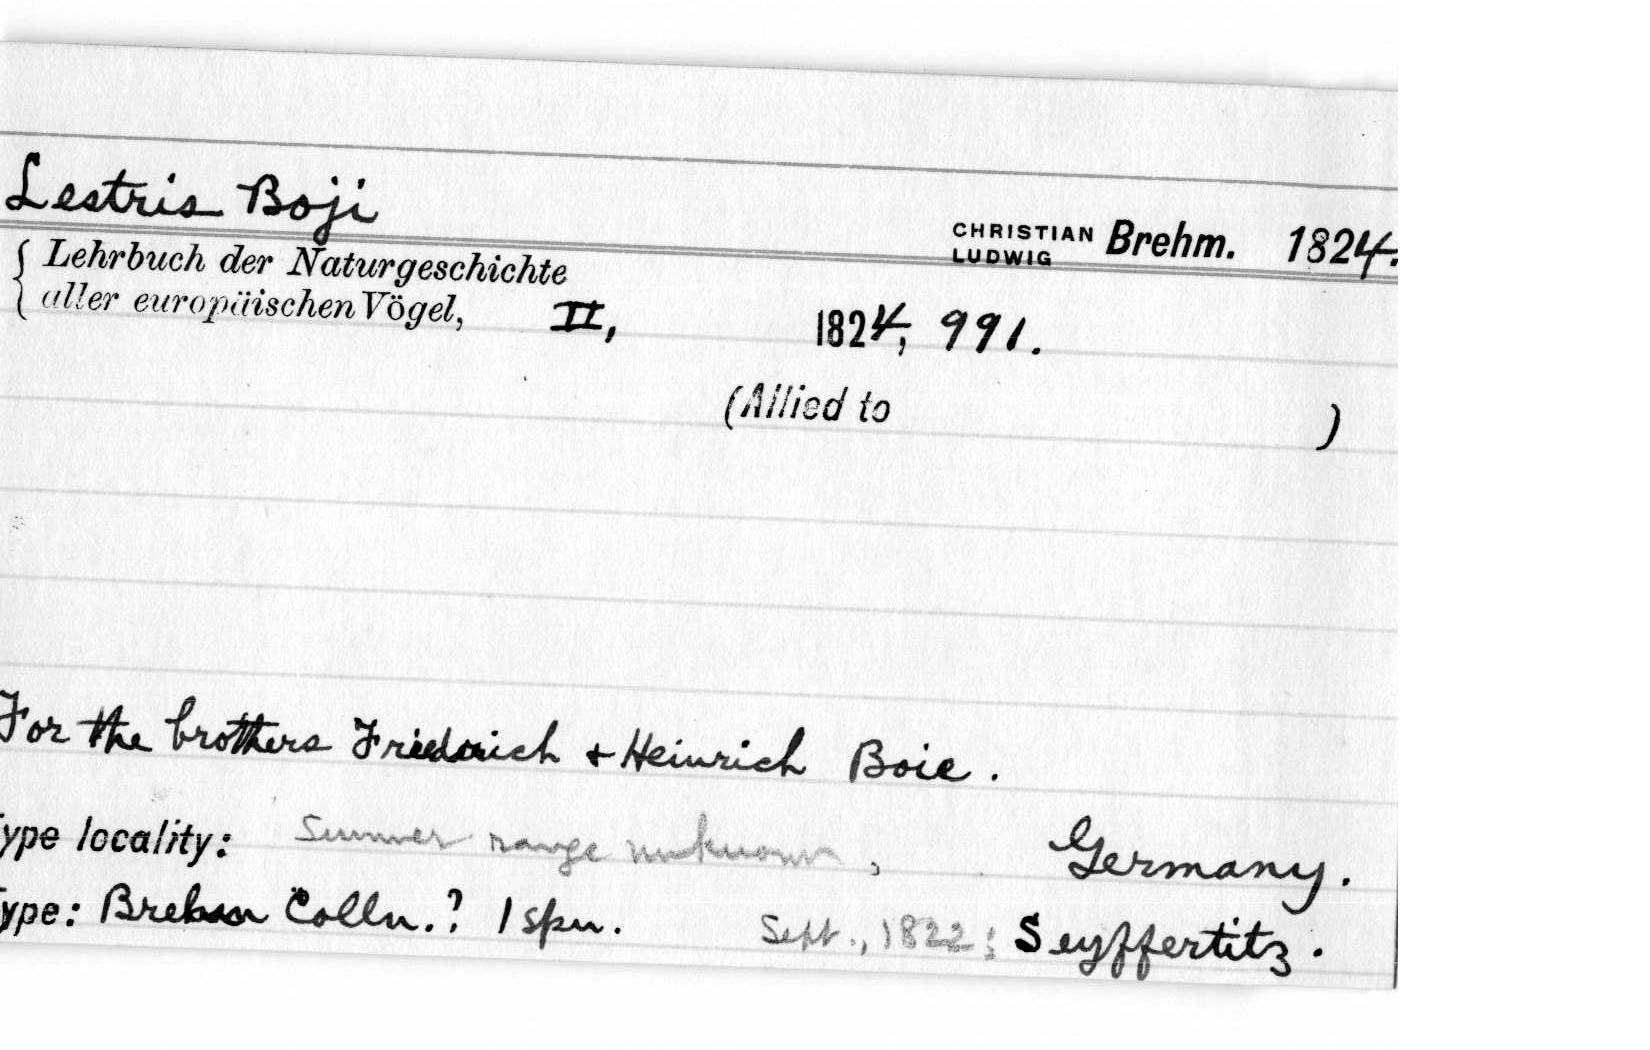 Lestris Boji
CHRISTIAN LUDWIG Brehm. 1824.
{ Lehrbuch der Naturgeschichte
aller europäischen Vögel, II, 1824, 991.
(Allied to )
For the brothers Friedrich + Heinrich Boie.
ype locality: Summer range unknown, Germany.
ype: Brehm Colln.? 1 spn. Sept., 1822; Seyffertitz.